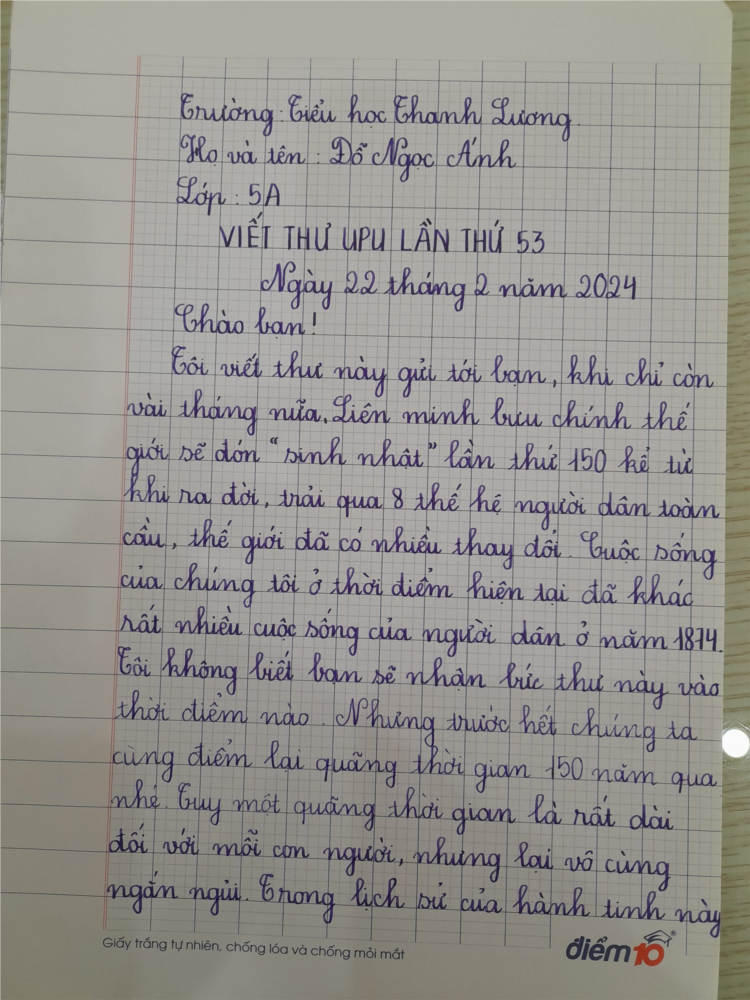 Trường: Tiểu học Thanh Lương
Họ và tên : Đỗ Ngọc Ánh
Lớp : 5A
VIẾT THƯ UPU LẦN THỨ 53
Ngày 22 tháng 2 năm 2024
Chào bạn!
Tôi viết thư này gửi tới bạn, khi chỉ còn
vài tháng nữa. Liên minh bưu chính thế
giới sẽ đón "sinh nhật" lần thứ 150 kể từ
khi ra đời, trải qua 8 thế hệ người dân toàn
cầu, thế giới đã có nhiều thay đổi. Cuộc sống
của chúng tôi ở thời điểm hiện tại đã khác
rất nhiều cuộc sống của người dân ở năm 1874.
Tôi không biết bạn sẽ nhận bức thư này vào
thời điểm nào. Nhưng trước hết chúng ta
cùng điểm lại quãng thời gian 150 năm qua
nhé. Tuy một quãng thời gian là rất dài
đối với mỗi con người, nhưng lại vô cùng
ngắn ngủi. Trong lịch sử của hành tinh này
Giấy trắng tự nhiên, chống lóa và chống mỏi mắt
điểm10